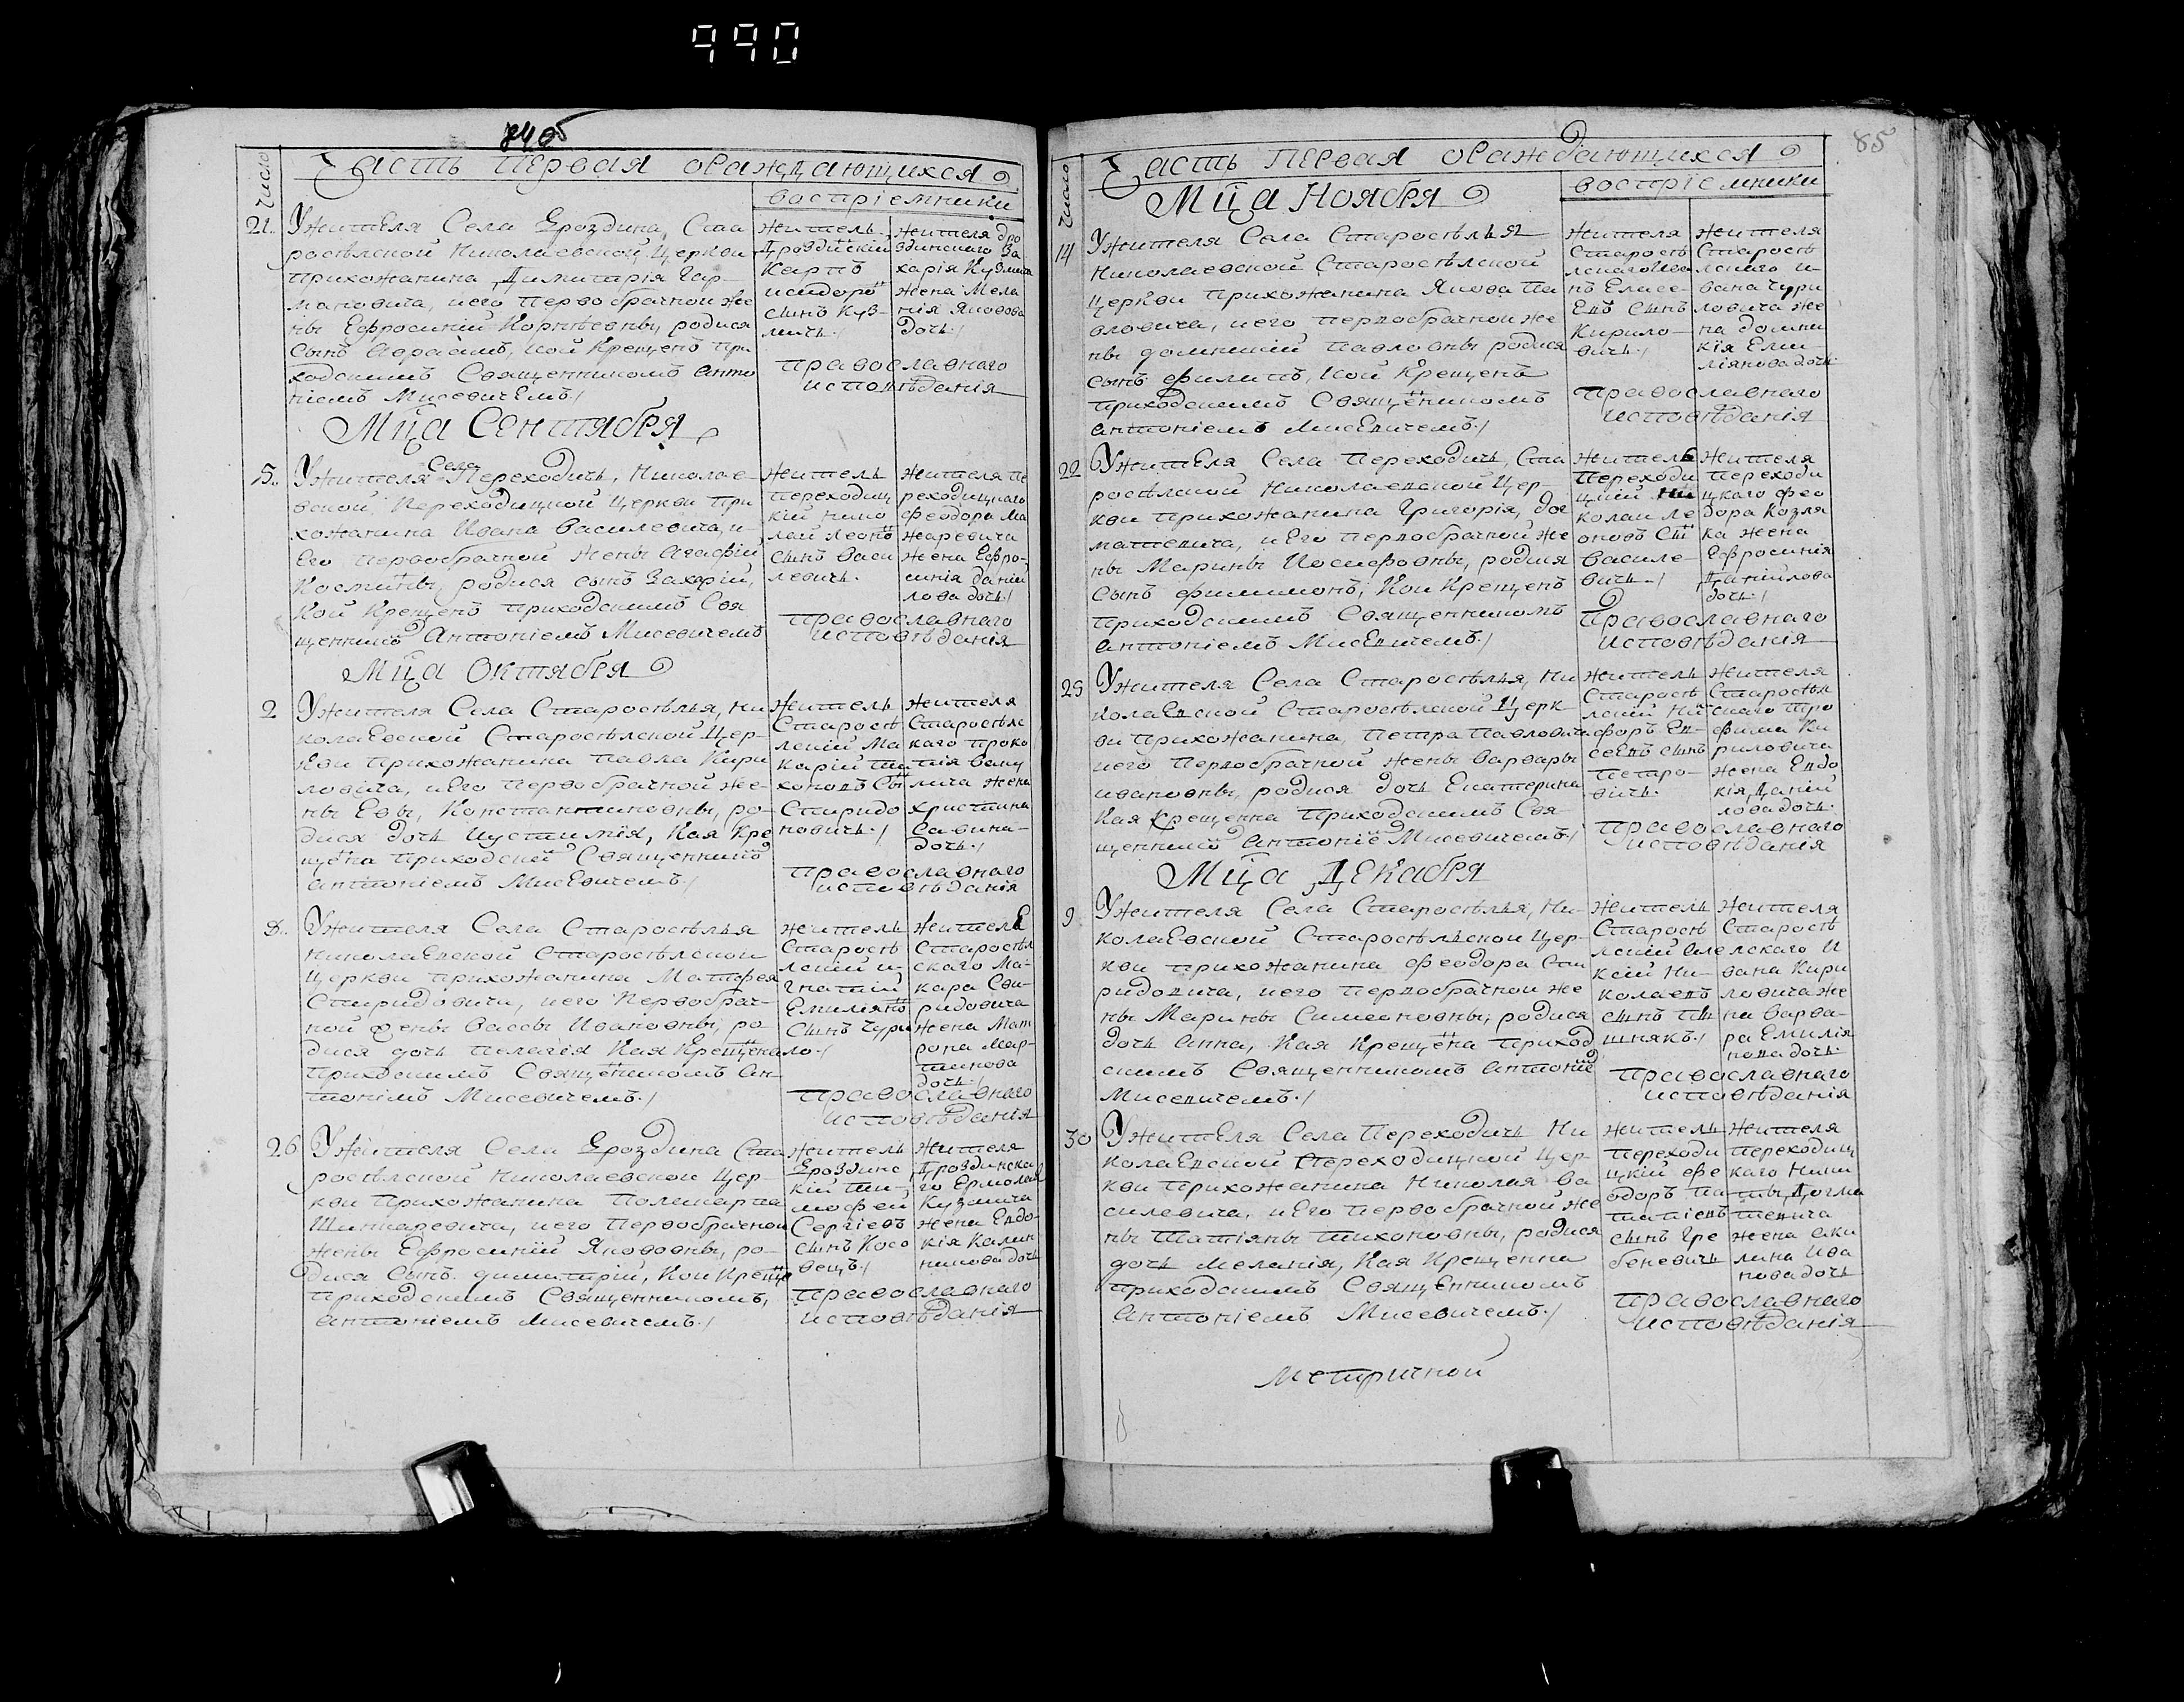 990
84об
Число
Часть первая ораждающихся
воспріемники
21.
Ужителя Села Дроздина, Ста
росѣлской Николаевской Церкви
прихожанина Димитрія Гар
мановича, иего первобрачной же
ны Ефросиній Корнѣевны, родися
сынъ Авраамъ, кой крещенъ при
ходскимъ Священникомъ Анто
ніемъ Мисевичемъ./
житель
Дроздинскій
Карпъ
исидоро
сынъ Куз-
мичъ.
жителя Дро
здинскаго За
харія Кузмича
жена Мела
нія Яковова
дочь./
православнаго
исповѣданія
Мца Сентября
5.
Ужителя Села Переходичь, Николае-
вской Переходицкой Церкви при
хожанина Ивана Василевича, и
Его первобрачной жены Агафіи
Космины, родися сынъ Захарій,
Кой Крещенъ приходскимъ Свя
щеннико Антоніемъ Мисевичемъ
житель
переходиц
кій нико
лай леонъ
сынъ Васи
левичь.
жителя Пе
реходицкаго
Феодора Ма
каревича
жена Ефро-
синія Даніи
лова дочь./
православнаго
исповѣданія
Мца Октября
2
Ужителя Села Старосѣлья, Ни
колаевской Старосѣлской Цер-
кви прихожанина Павла Кири
ловича, иЕго первобрачной же-
ны Евы, Константиновны, ро-
дися дочь Иустинія, Кая Кре
щена приходскй Священнико
Антоніемъ Мисевичемъ./
житель
Старосѣ
лскій Ма
карій Ти
хоновъ Сы
Спиридо
новичь./
жителя
Старосѣлс
каго Проко
пія Ваку
лича жена
христина
Савина-
дочь./
православнаго
исповѣданія
8.
Ужителя Села Старосѣлья
Николаевской Старосѣлской
Церкви прихожанина Матфея
Спиридовича, иего первобрач-
ной жены Вассы Ивановны, ро-
дися дочь Пелагія Кая Крещена
приходскимъ Священникомъ Ан-
тонімъ Мисевичемъ./
житель
Старосѣ
лскій и-
гнатій
Емиліянъ
Сынъ Чури
ло./
жителЕ
Старосѣл
скаго Ма-
кара Сви-
ридовича
жена Мат
рона Мар-
тинова
дочь./
православнаго
исповѣданія
26
Ужителя Села Дроздина Ста
росѣлской Николаевской Цер
кви прихожанина Поликарпа
Шинкаревича, иего первобрачной
жены Ефросиніи Яковovны, ро-
дися Сынъ димитрій, Кои Креще
приходскимъ Священникомъ,
Антоніемъ Мисевичемъ./
житель
Дроздинс
кій Ти-
мофей
Сергіевъ
сынъ Косо
вецъ./
жителя
Дроздинска
го Ермолая
Кузмича
жена Евдо-
кія Калин
никова дочь
православнаго
исповѣданія
85
Число
Часть первая ораждающихся
воспріемники
Мца Ноября
14
Ужителя Села Старосѣлья
Николаевской Старосѣлской
Церкви прихожанина Якова Па
вловича, иего первобрачной же
ны домникіи Павловны родися
сынъ Филипъ, кой Крещенъ
приходскимъ Священникомъ
Антоніемъ Мисевичемъ./
жителя
Старосѣ
лскаго Ива
нъ Елисе-
евъ сынъ
Кирило-
вичь./
жителя
Старосѣ
лскаго И-
вана Чури
ловича же
на домни
кія Еми
ліянова дочь
православнаго
исповѣданія
22
Ужителя Села Переходичь, Ста
росѣлской Николаевской Цер-
кви прихожанина Григорія, дог
матевича, иЕго первобрачной же
ны Марины Иосифовны, родися
сынъ филимонъ, Кои Крещенъ
приходскимъ Священникомъ
Антоніемъ Мисевичемъ./
житель
Переходи
цкій Ни
колаи Ле
оновъ Сы
Василе-
вичь./
жителя
Переходи
цкаго Фео
дора Козля
ка жена
Ефросинія
Даниілова
дочь./
православнаго
исповѣданія
25
Ужителя Села Старосѣлья, Ни
колаевской Старосѣлской Церк
ви прихожанина, Петра Павловича
иего первобрачной жены Варвары
ивановны, родися дочь Екатерина
Кая Крещенна приходскимъ Свя
щеннико Антоніе Мисевичемъ./
житель
Старосѣ
лскій Ни
сифоръ Ев-
сеевъ сынъ
Петро-
вичь.
жителя
Старосѣл
скаго Тро
фима Ки
риловича
жена Евдо
кія, Даній
лова дочь.
православнаго
исповѣданія
Мца Декабря
9
Ужителя Села Старосѣлья, Ни-
колаевской Старосѣльской Цер-
кви прихожанина Феодора Спи
ридовича, иего первобрачной же
ны Марины Симеоновны, родися
дочь Анна, Кая Крещена приход
скимъ Священникомъ Антоніе
Мисевичемъ./
житель
Старосѣ
лскій Але
ксій Ни-
колаевъ
сынъ Пи
шнякъ./
жителя
Старосѣ
лскаго И
вана Кири
ловича же
на Варва-
ра Емилія
нова дочь.
православнаго
исповѣданія
30
Ужителя Села Переходичь Ни
колаевской Переходицкой Цер-
кви прихожанина Николая Ва
силевича, иЕго первобрачной же
ны Татіяны тихоновны, родися
дочь Меланія, Кая Крещенна
приходскимъ Священникомъ
Антоніемъ Мисевичемъ./
житель
Переходи
цкій Фе
одоръ По
тапіевъ
сынъ Гре
беневичь
жителя
Переходиц
каго Ники
ты, Догма
тевича
жена Аки
лина Ива
нова дочь
православнаго
исповѣданія
Метричной